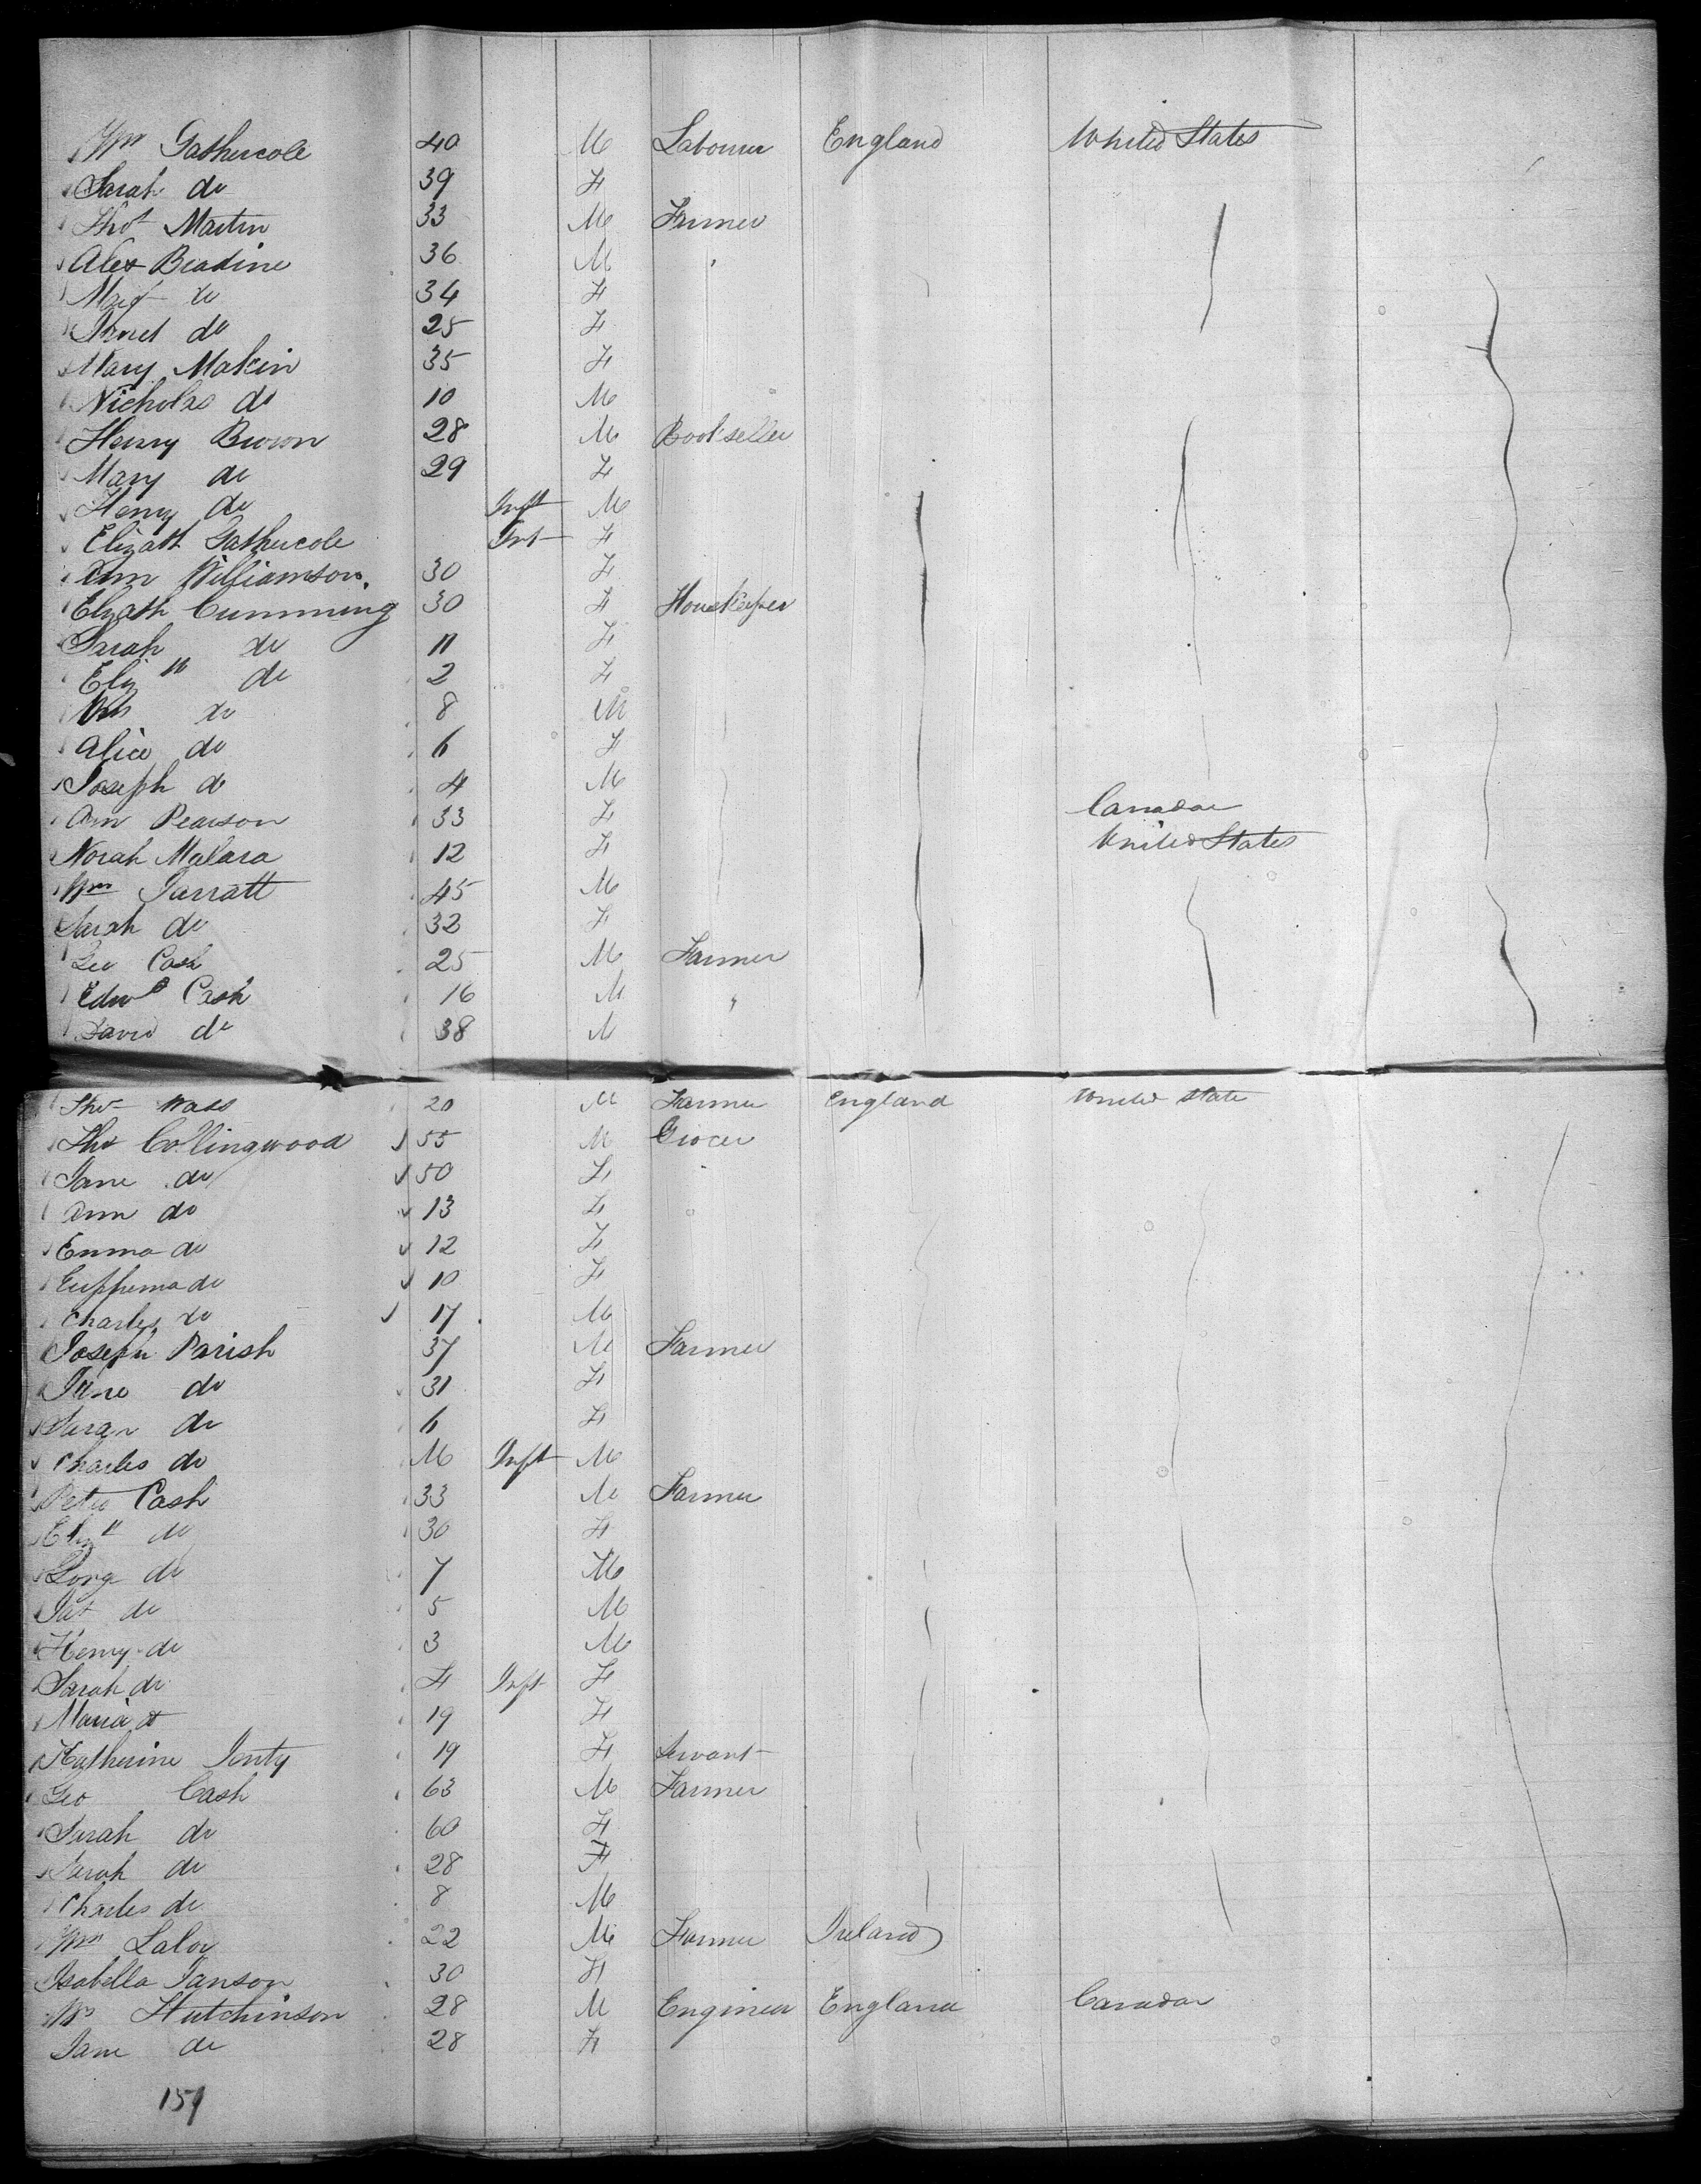 Wm Gathercole 40 M Labourer England United States
Sarah do 39 F
Thos Martin 33 M Farmer
Alex Beadine 36 M "
Margt do 34 F
Janet do 25 F
Mary Makin 35 F
Nicholas do 10 M
Henry Brown 28 M Bookseller
Mary do 29 F
Henry do Inft M
Elizath Gathercole Inft F
Ann Williamson. 30 F
Elizath Cumming 30 F Housekeeper
Sarah do 11 F
Elizth do 2 F
Wm do 8 M
Alice do 6 F
Joseph do 4 M
Ann Pearson 33 F Canada
Norah Malara 12 F United States
Wm Jarratt 45 M
Sarah do 32 F
Geo Cash 25 M Farmer
Edwd Cash 16 M "
David do 38 M
Thos Wass 20 M Farmer England United State
Thos Collingwood 55 M Grocer
Jane do 50 F
Ann do 13 F
Emma do 12 F
Eupphema do 10 F
Charles do 17 M
Joseph Parish 37 M Farmer
Jane do 31 F
Sarah do 6 F
Charles do M Inft M
Peter Cash 33 M Farmer
Elizth do 30 F
George do 7 M
Pat do 5 M
Henry do 3 M
Sarah do F Inft F
Maria do 19 F
Katherine Jenty 19 F Servant
Geo Cash 63 M Farmer
Sarah do 60 F
Sarah do 28 F
Charles do 8 M
Wm Lalor 22 M Farmer Ireland
Isabella Janson 30 F
Wm Hutchinson 28 M Engineer England Canada
Jane do 28 F
159